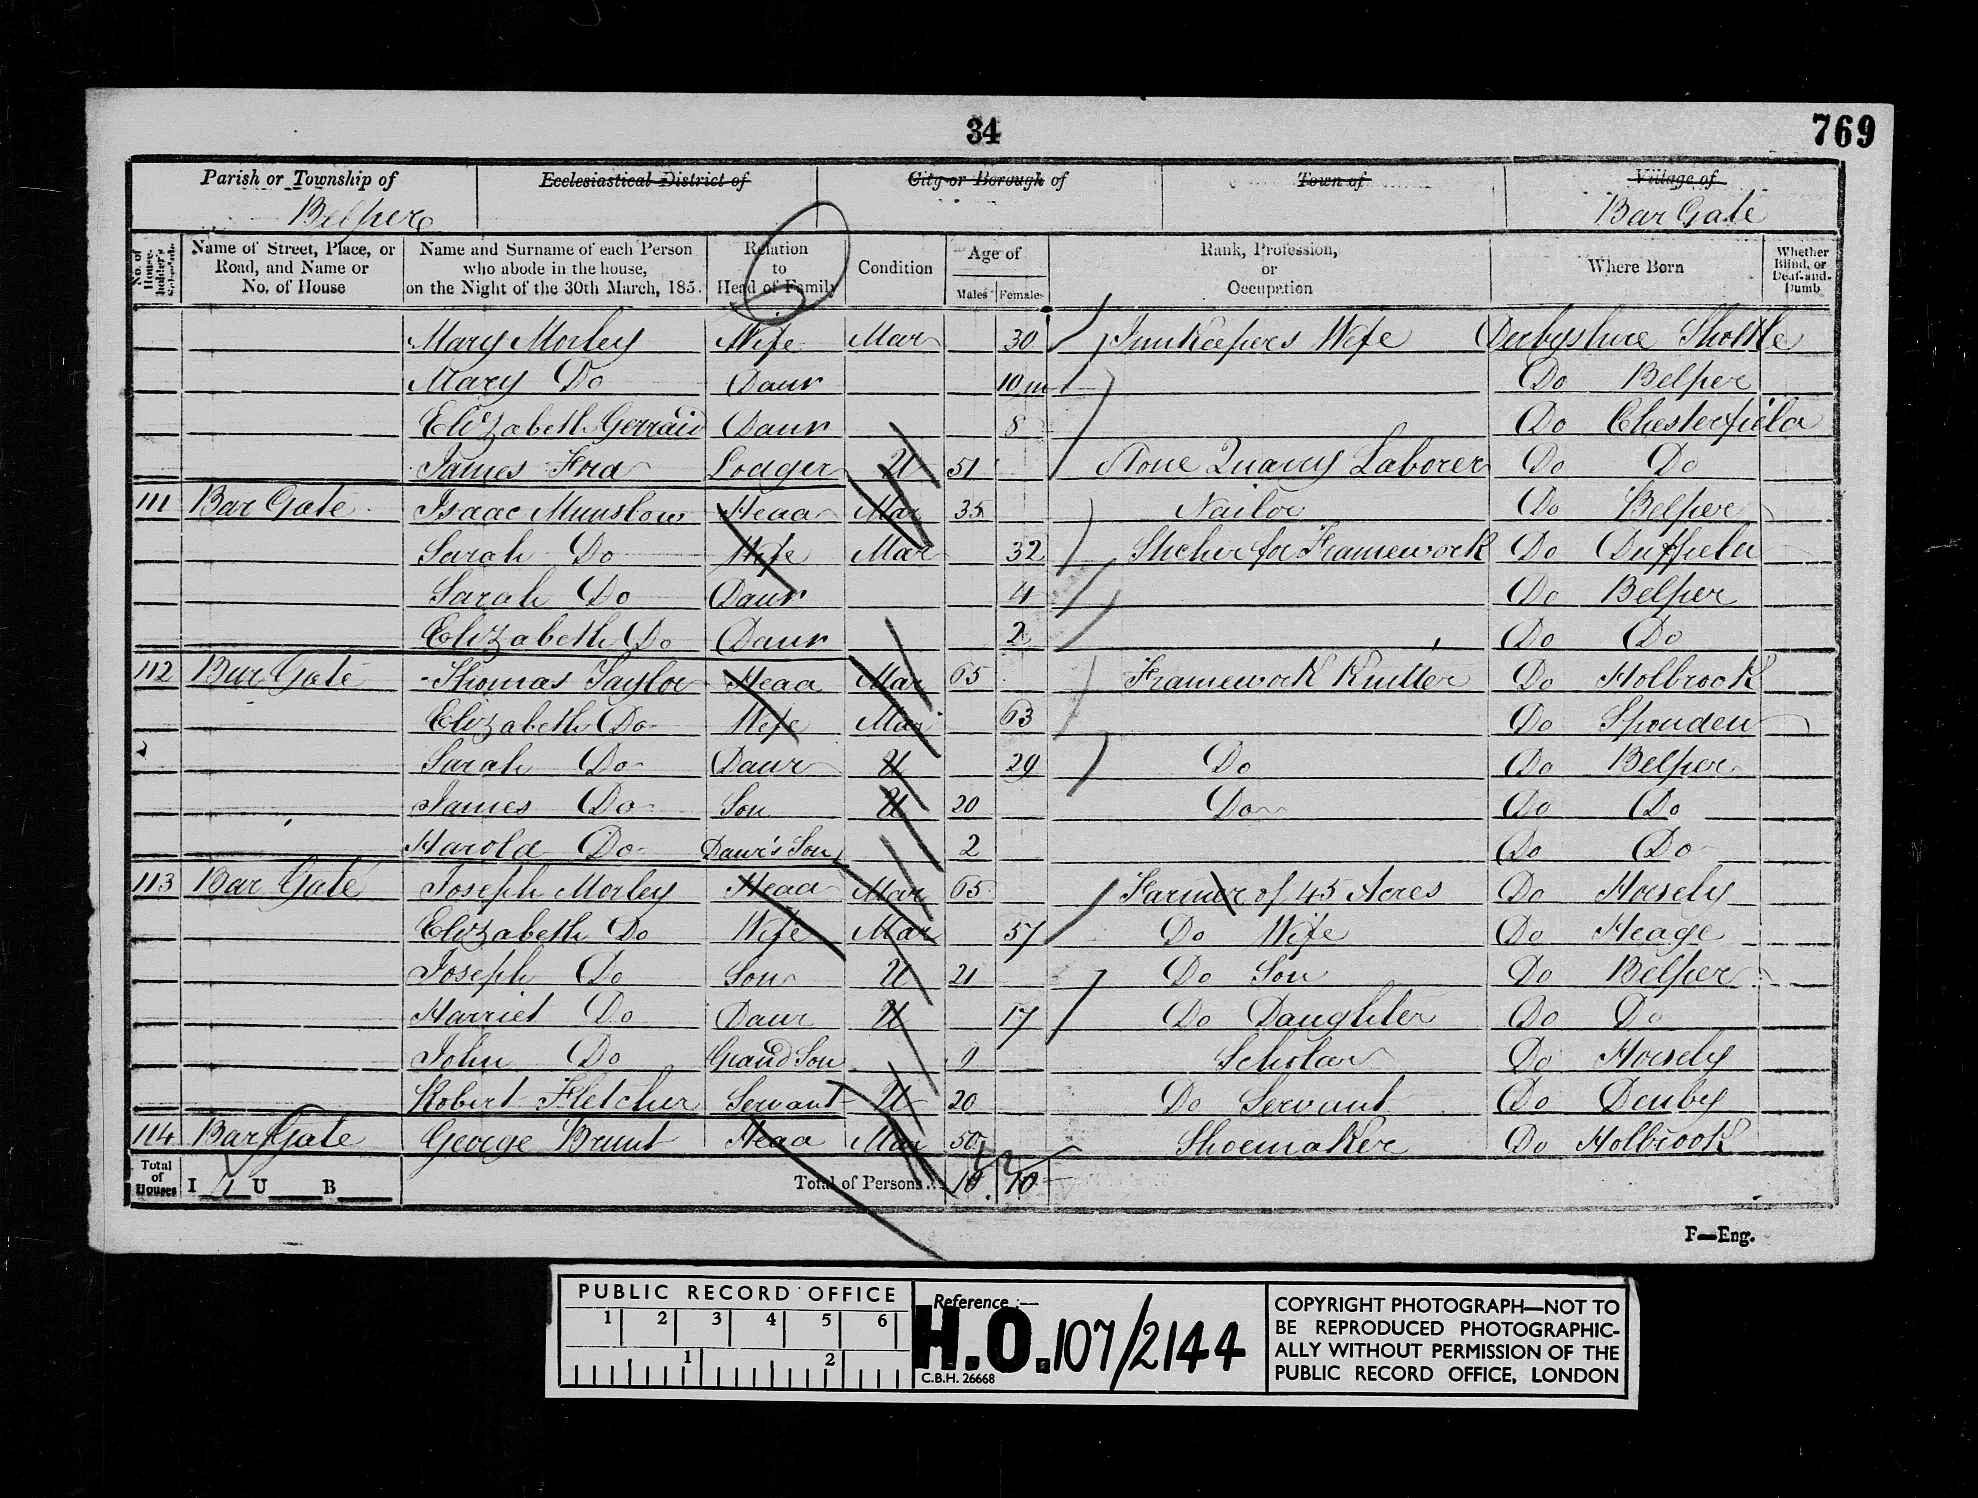 34
769
Parish or Township of Ecclesiastical District of City or Borough of Town of Village of
Belper Bar Gate
No. of House-holder's Schedule Name of Street, Place, or Road, and Name or No. of House Name and Surname of each Person who abode in the house, on the Night of the 30th March, 185. Relation to Head of Family Condition Age of Males Females Rank, Profession, or Occupation Where Born Whether Blind, or Deaf-and-Dumb
Mary Morley Wife Mar 30 Innkeepers Wife Derbyshire Shottle
Mary Do Daur 10 m Do Belper
Elizabeth Daur 8 Do Chesterfield
James Ford Lodger U 51 Stone Quarry Laborer Do Do
111 Bar Gate Isaac Munslow Head Mar 35 Nailor Do Belper
Sarah Do Wife Mar 32 for Framework Do Duffield
Sarah Do Daur 4 Do Belper
Elizabeth Do Daur 2 Do Do
112 Bar Gate Thomas Taylor Head Mar 65 Framework Knitter Do Holbrook
Elizabeth Do Wife Mar 63 Do Sponden
Sarah Do Daur U 29 Do Do Belper
James Do Son U 20 Do Do Do
Harold Do Daur's Son 2 Do Do
113 Bar Gate Joseph Morley Head Mar 65 Farmer of 45 Acres Do Horsely
Elizabeth Do Wife Mar 57 Do Wife Do Heage
Joseph Do Son U 21 Do Son Do Belper
Harriet Do Daur U 17 Do Daughter Do Do
John Do Grand Son 9 Scholar Do Horsely
Robert Fletcher Servant U 20 Do Servant Do Denby
114 Bar Gate George Brunt Head Mar 50 Shoemaker Do Holbrook
Total of Houses I 4 U B Total of Persons 10 10
F—Eng.
PUBLIC RECORD OFFICE
1 2 3 4 5 6
1 2
Reference :—
H.O. 107/2144
C.B.H. 26668
COPYRIGHT PHOTOGRAPH—NOT TO
BE REPRODUCED PHOTOGRAPHIC-
ALLY WITHOUT PERMISSION OF THE
PUBLIC RECORD OFFICE, LONDON